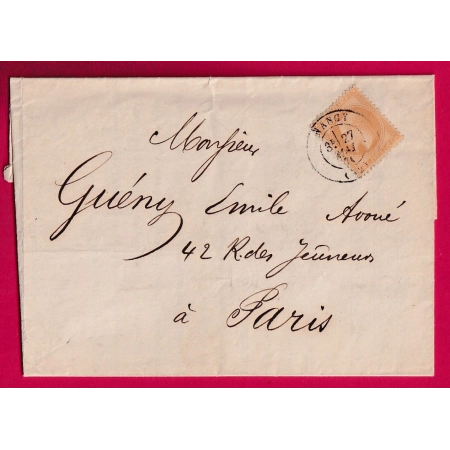 NANCY
27
Monsieur
Guény Emile Avoué
42 R. des Jeûneurs
à Paris